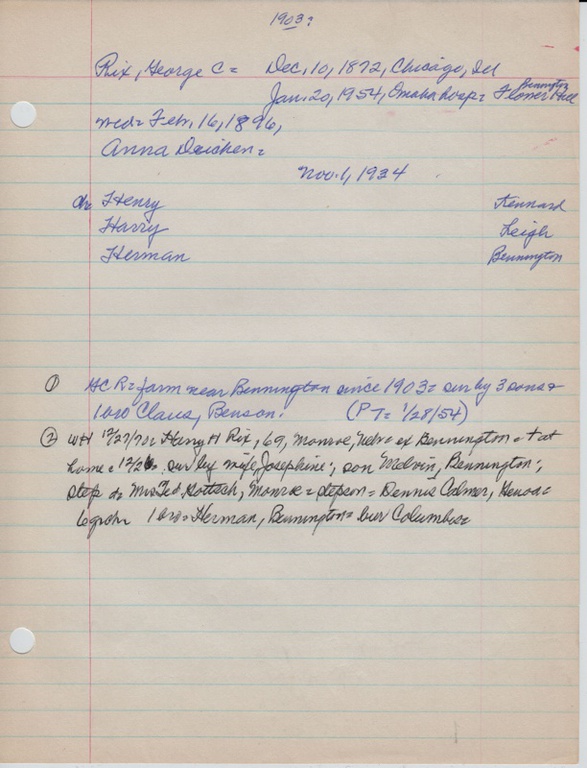 1903?
Rix, George C = Dec, 10, 1872, Chicago, Ill
Bennington
Jan. 20, 1954, Omaha hosp = Flower Hill
med = Feb, 16, 1896,
Anna Deichen =
Nov. 1, 1934
ch Henry Kennard
Harry Leigh
Herman Bennington
① G C R = farm near Bennington since 1903 = sur by 3 sons +
1 bro Claus, Benson. (P T = 1/28/54)
② WH 12/27/72 Harry H Rix, 69, Monroe, Nebr = ex Bennington = + at
home = 12/26 sur by wife, Josephine; son Melvin, Bennington;
step d = Mrs Ted, Monroe = stepson = Dennis Colmer, Genoa =
6 grchr 1 bro = Herman, Bennington = bur Columbus =